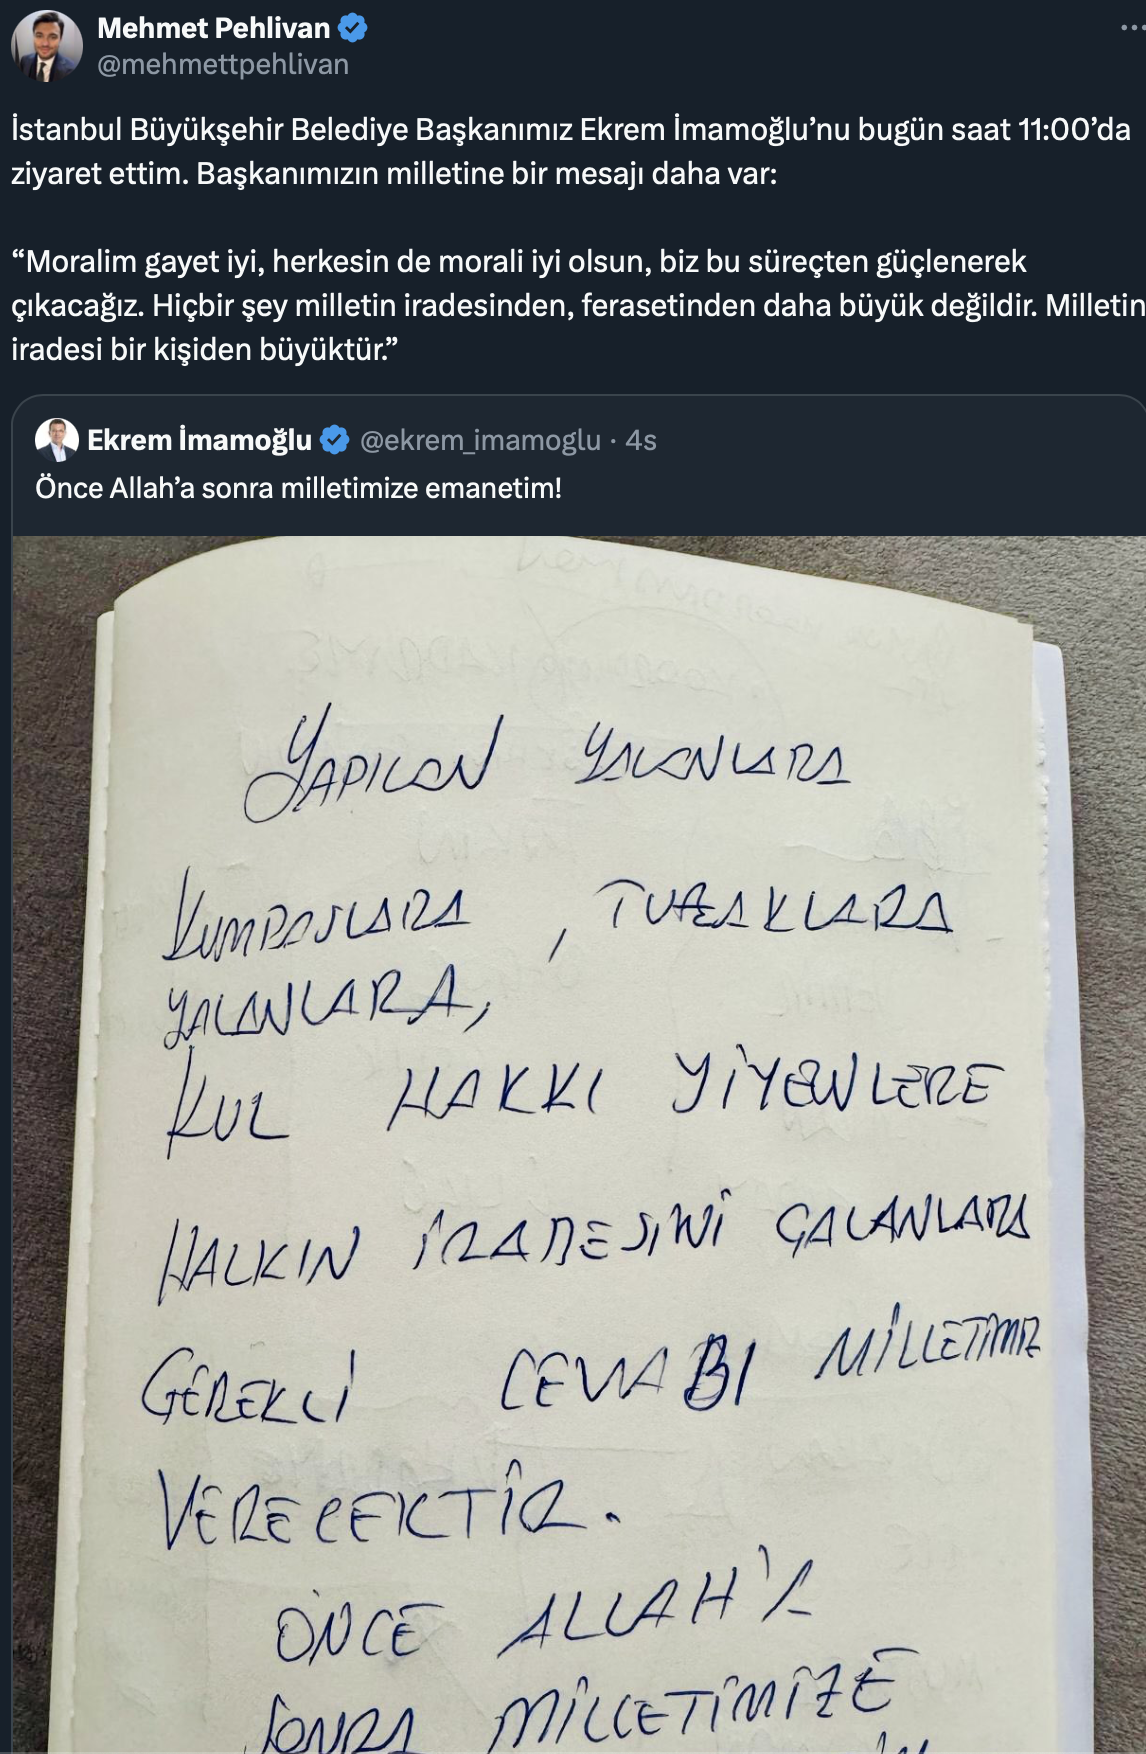 Mehmet Pehlivan
@mehmettpehlivan
İstanbul Büyükşehir Belediye Başkanımız Ekrem İmamoğlu’nu bugün saat 11:00’da
ziyaret ettim. Başkanımızın milletine bir mesajı daha var:
“Moralim gayet iyi, herkesin de morali iyi olsun, biz bu süreçten güçlenerek
çıkacağız. Hiçbir şey milletin iradesinden, ferasetinden daha büyük değildir. Milletin
iradesi bir kişiden büyüktür.”
Ekrem İmamoğlu @ekrem_imamoglu · 4s
Önce Allah’a sonra milletimize emanetim!
YAPILAN YALANLARA
KUMPASLARA, TUZAKLARA
YALANLARA,
KUL HAKKI YİYENLERE
HALKIN İRADESİNİ ÇALANLARA
GEREKLİ CEVABI MİLLETİMİZ
VERECEKTİR.
ÖNCE ALLAH'A
SONRA MİLLETİMİZE